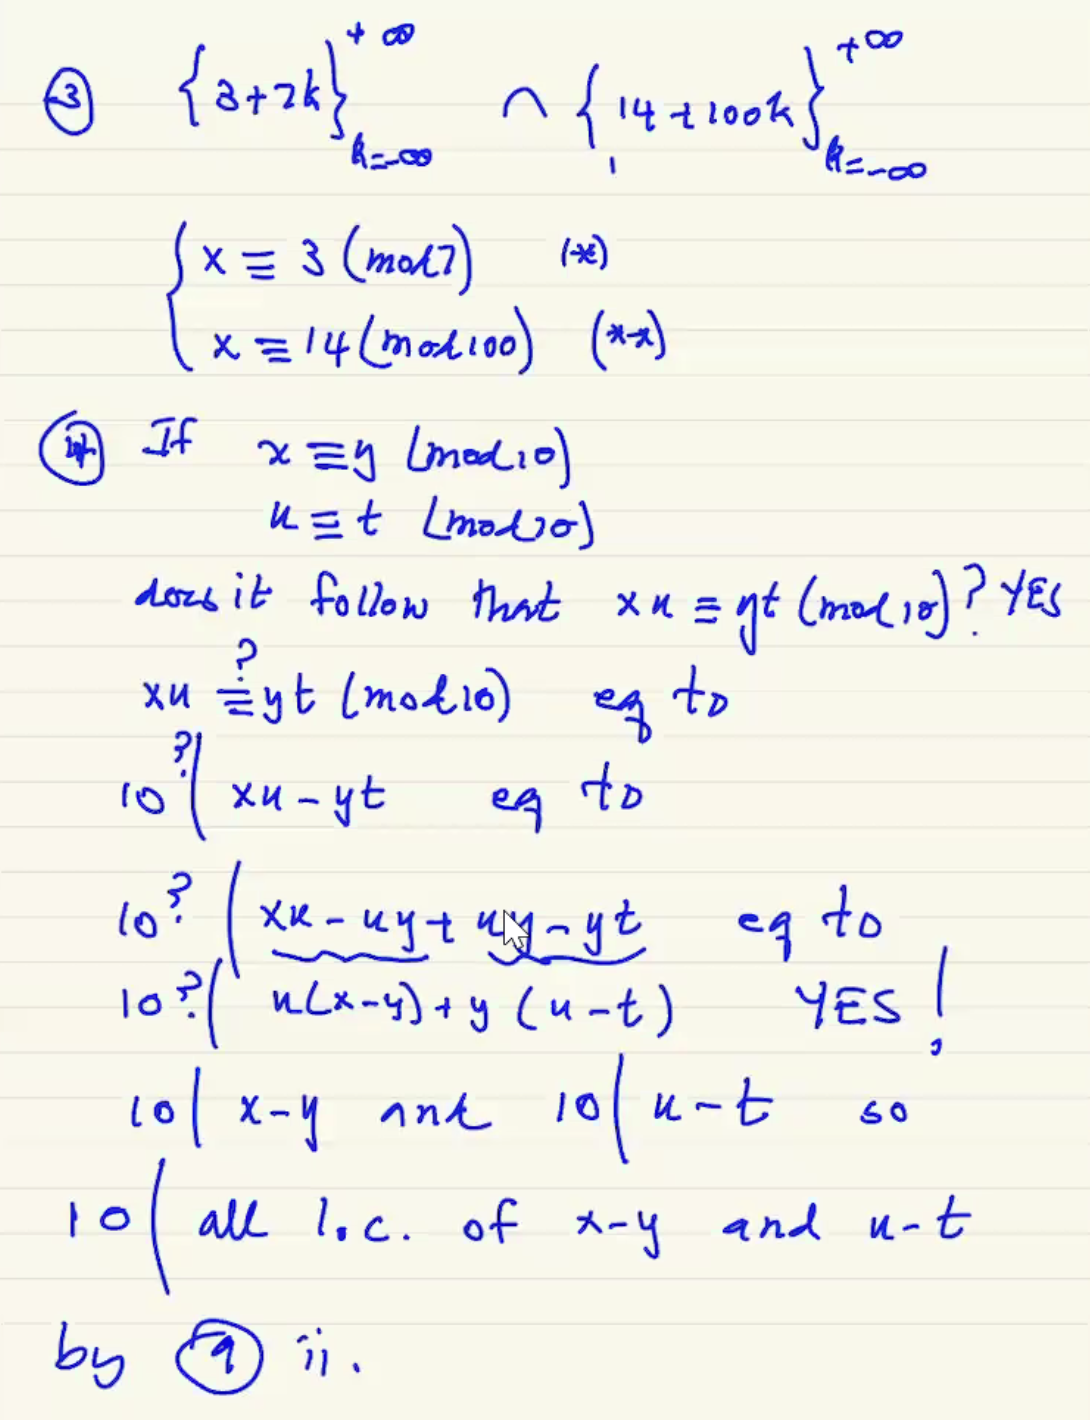 ③ {3+7k}_{k=-∞}^{+∞} ∩ {14+100k}_{k=-∞}^{+∞}
x ≡ 3 (mod 7) (*)
x ≡ 14 (mod 100) (**)
④ If x ≡ y (mod 10)
u ≡ t (mod 10)
does it follow that xu ≡ yt (mod 10)? YES
xu ≡? yt (mod 10) eq to
10 ?| xu - yt eq to
10 ?| xu - uy + uy - yt eq to
10 ?| u(x-y) + y(u-t) YES!
10 | x-y and 10 | u-t so
10 | all l.c. of x-y and u-t
by ⑨ ii.